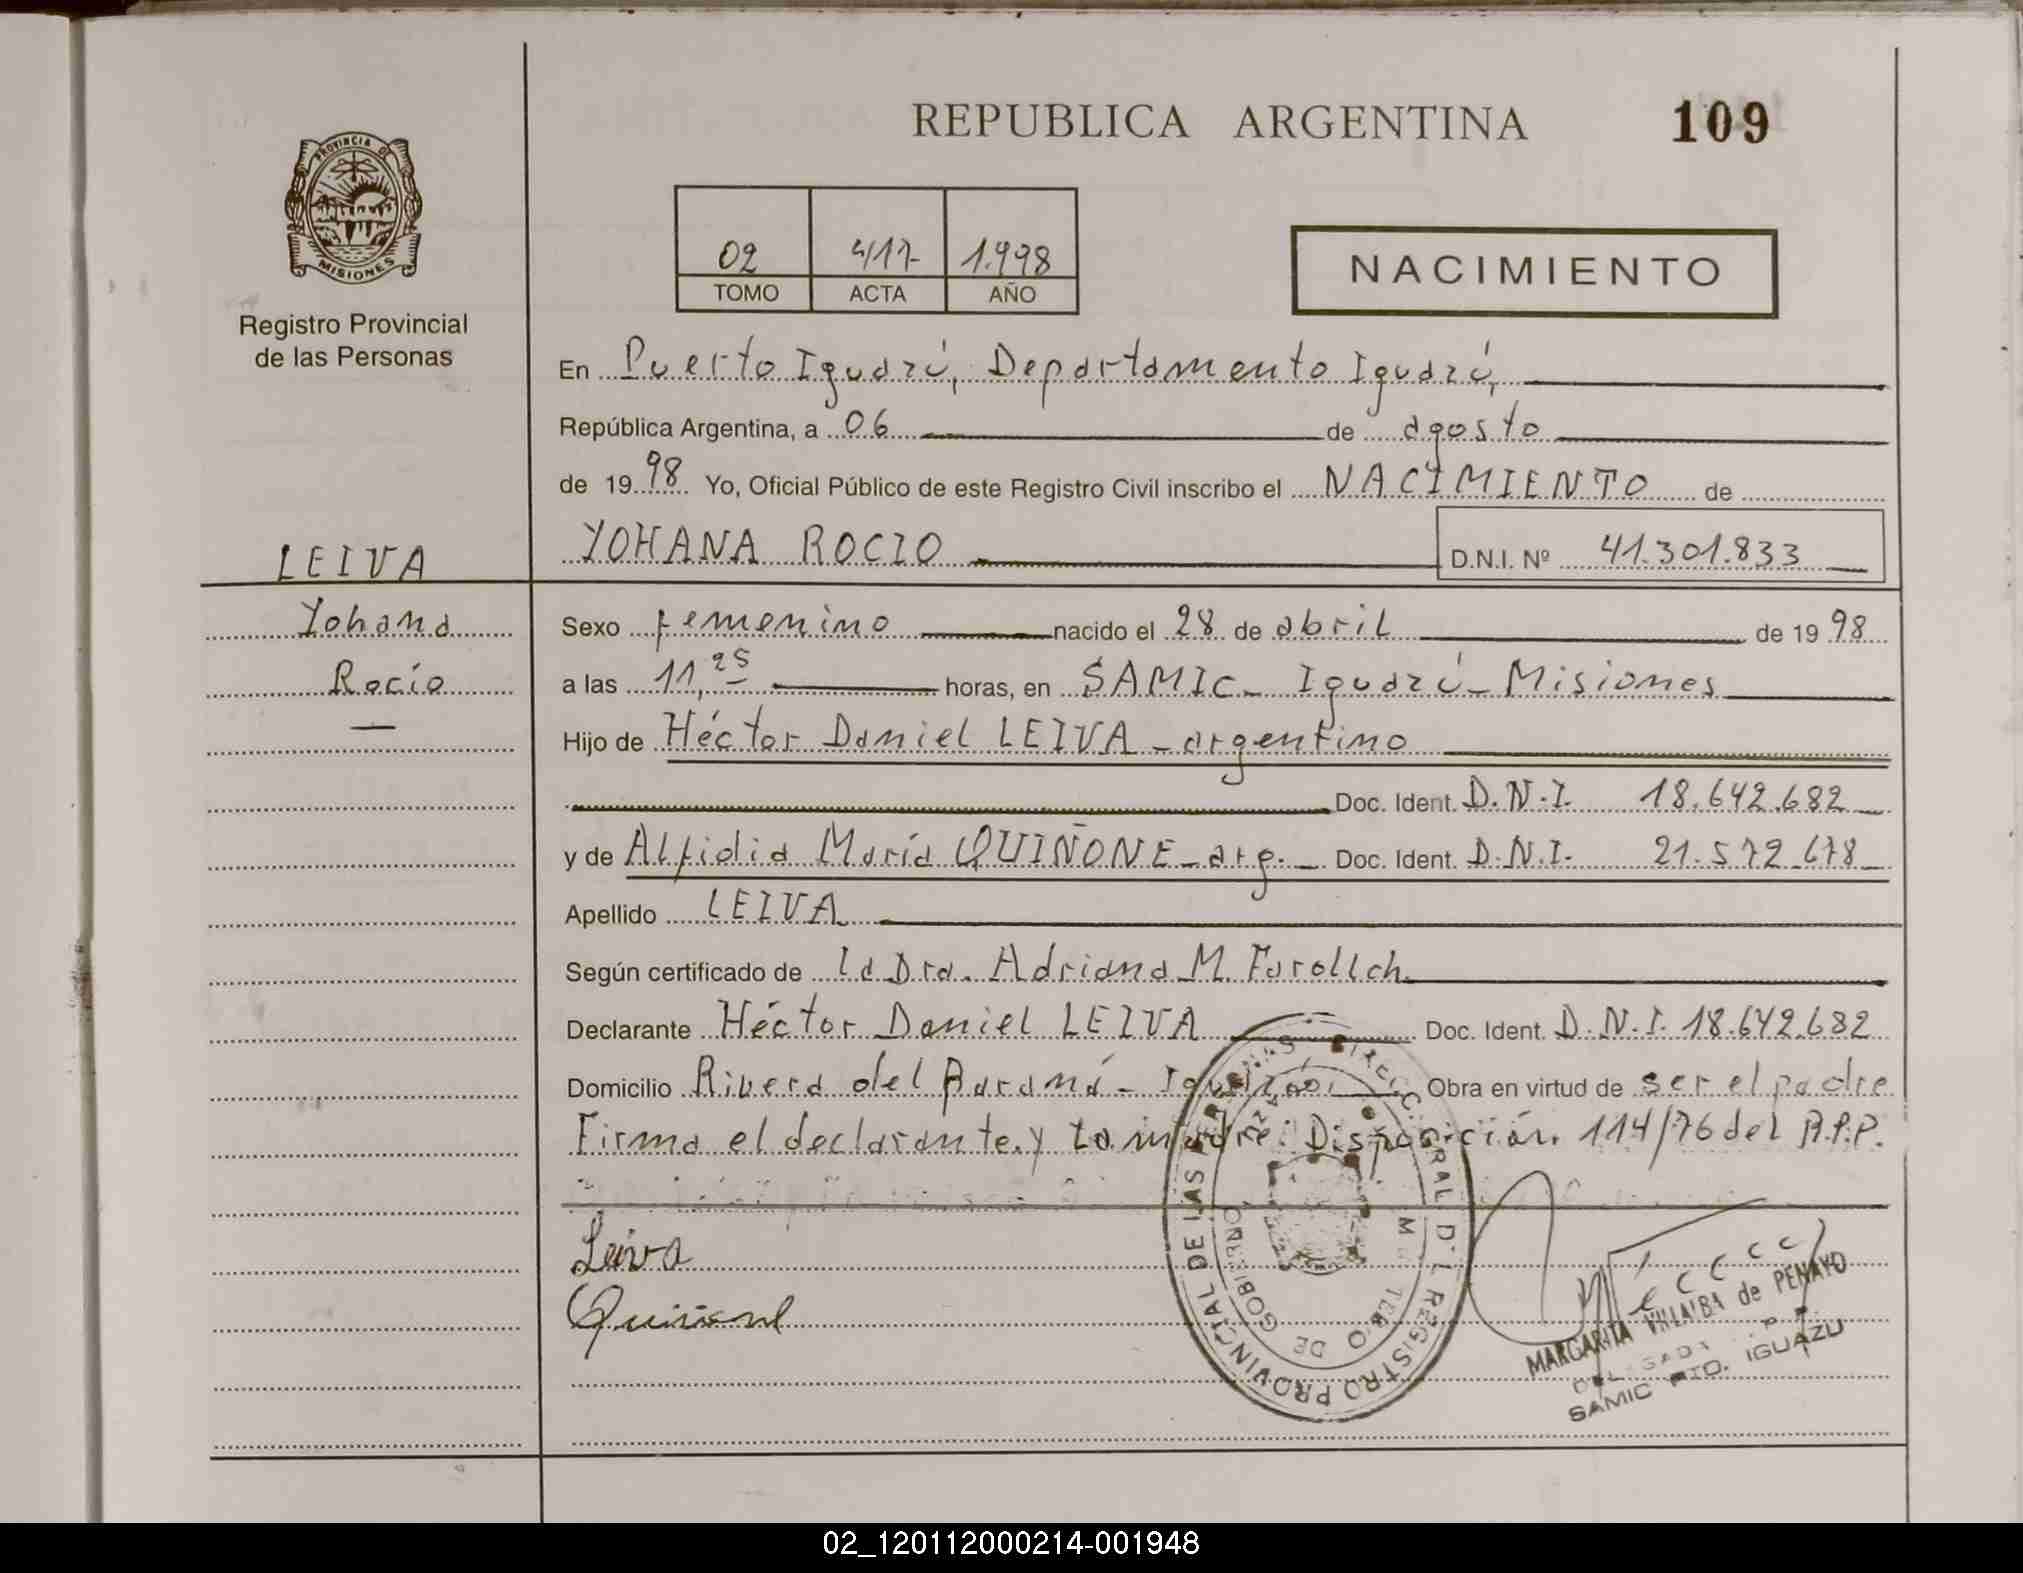 REPUBLICA ARGENTINA
109
PROVINCIA DE
MISIONES
Registro Provincial
de las Personas
02 417- 1.998
TOMO ACTA AÑO
NACIMIENTO
En Puerto Iguazú, Departamento Iguazú,
República Argentina, a 06 de agosto
de 1998 Yo, Oficial Público de este Registro Civil inscribo el NACIMIENTO de
YOHANA ROCIO D.N.I. Nº 41.301.833
LEIVA
Yohana
Rocío
Sexo femenino nacido el 28 de abril de 1998
a las 11,25 horas, en SAMIC- Iguazú- Misiones
Hijo de Héctor Daniel LEIVA - argentino
Doc. Ident. D.N.I. 18.642.682
y de Alfidia María QUIÑONE - arg. - Doc. Ident. D.N.I. 21.572.678
Apellido LEIVA
Según certificado de la Dra. Adriana M.
Declarante Héctor Daniel LEIVA Doc. Ident. D.N.I. 18.642.682
Domicilio Rivera del Paraná - Iguazú. Obra en virtud de ser el padre
Firma el declarante y la madre: Disposición 114/76 del R.P.P.
Leiva
Quiñone
DIRECC GRAL DEL REGISTRO PROVINCIAL DE LAS PERSONAS
MINISTERIO DE GOBIERNO
MARGARITA VILLALBA de PENAYO
DELEGADA
SAMIC PTO. IGUAZU
02_120112000214-001948